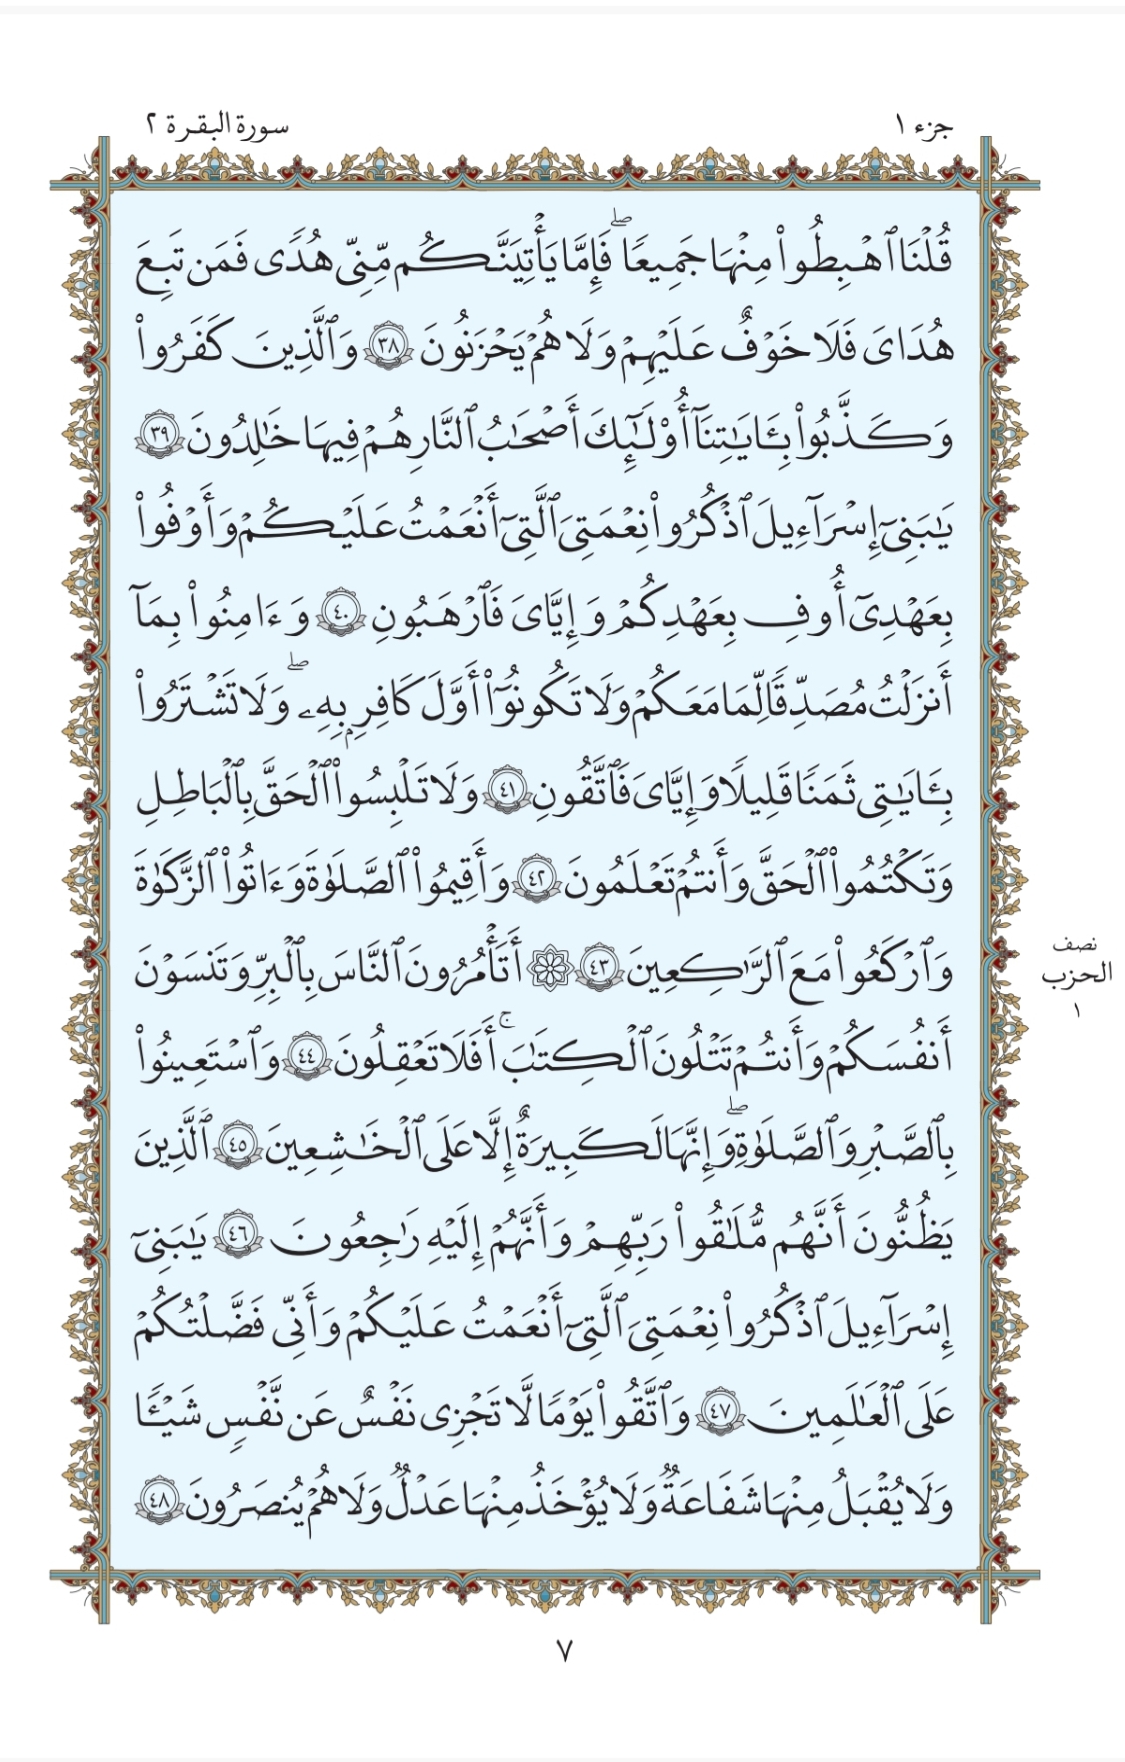 جزء ١
سورة البقرة ٢
قُلۡنَا ٱهۡبِطُواْ مِنۡهَا جَمِيعٗاۖ فَإِمَّا يَأۡتِيَنَّكُم مِّنِّي هُدٗى فَمَن تَبِعَ
هُدَايَ فَلَا خَوۡفٌ عَلَيۡهِمۡ وَلَا هُمۡ يَحۡزَنُونَ ٣٨ وَٱلَّذِينَ كَفَرُواْ
وَكَذَّبُواْ بِـَٔايَٰتِنَآ أُوْلَٰٓئِكَ أَصۡحَٰبُ ٱلنَّارِ هُمۡ فِيهَا خَٰلِدُونَ ٣٩
يَٰبَنِيٓ إِسۡرَٰٓءِيلَ ٱذۡكُرُواْ نِعۡمَتِيَ ٱلَّتِيٓ أَنۡعَمۡتُ عَلَيۡكُمۡ وَأَوۡفُواْ
بِعَهۡدِيٓ أُوفِ بِعَهۡدِكُمۡ وَإِيَّٰيَ فَٱرۡهَبُونِ ٤٠ وَءَامِنُواْ بِمَآ
أَنزَلۡتُ مُصَدِّقٗا لِّمَا مَعَكُمۡ وَلَا تَكُونُوٓاْ أَوَّلَ كَافِرِۭ بِهِۦۖ وَلَا تَشۡتَرُواْ
بِـَٔايَٰتِي ثَمَنٗا قَلِيلٗا وَإِيَّٰيَ فَٱتَّقُونِ ٤١ وَلَا تَلۡبِسُواْ ٱلۡحَقَّ بِٱلۡبَٰطِلِ
وَتَكۡتُمُواْ ٱلۡحَقَّ وَأَنتُمۡ تَعۡلَمُونَ ٤٢ وَأَقِيمُواْ ٱلصَّلَوٰةَ وَءَاتُواْ ٱلزَّكَوٰةَ
وَٱرۡكَعُواْ مَعَ ٱلرَّٰكِعِينَ ٤٣ ۞ أَتَأۡمُرُونَ ٱلنَّاسَ بِٱلۡبِرِّ وَتَنسَوۡنَ
نصف
الحزب
١
أَنفُسَكُمۡ وَأَنتُمۡ تَتۡلُونَ ٱلۡكِتَٰبَۚ أَفَلَا تَعۡقِلُونَ ٤٤ وَٱسۡتَعِينُواْ
بِٱلصَّبۡرِ وَٱلصَّلَوٰةِۖ وَإِنَّهَا لَكَبِيرَةٌ إِلَّا عَلَى ٱلۡخَٰشِعِينَ ٤٥ ٱلَّذِينَ
يَظُنُّونَ أَنَّهُم مُّلَٰقُواْ رَبِّهِمۡ وَأَنَّهُمۡ إِلَيۡهِ رَٰجِعُونَ ٤٦ يَٰبَنِيٓ
إِسۡرَٰٓءِيلَ ٱذۡكُرُواْ نِعۡمَتِيَ ٱلَّتِيٓ أَنۡعَمۡتُ عَلَيۡكُمۡ وَأَنِّي فَضَّلۡتُكُمۡ
عَلَى ٱلۡعَٰلَمِينَ ٤٧ وَٱتَّقُواْ يَوۡمٗا لَّا تَجۡزِي نَفۡسٌ عَن نَّفۡسٖ شَيۡـٔٗا
وَلَا يُقۡبَلُ مِنۡهَا شَفَٰعَةٞ وَلَا يُؤۡخَذُ مِنۡهَا عَدۡلٞ وَلَا هُمۡ يُنصَرُونَ ٤٨
٧